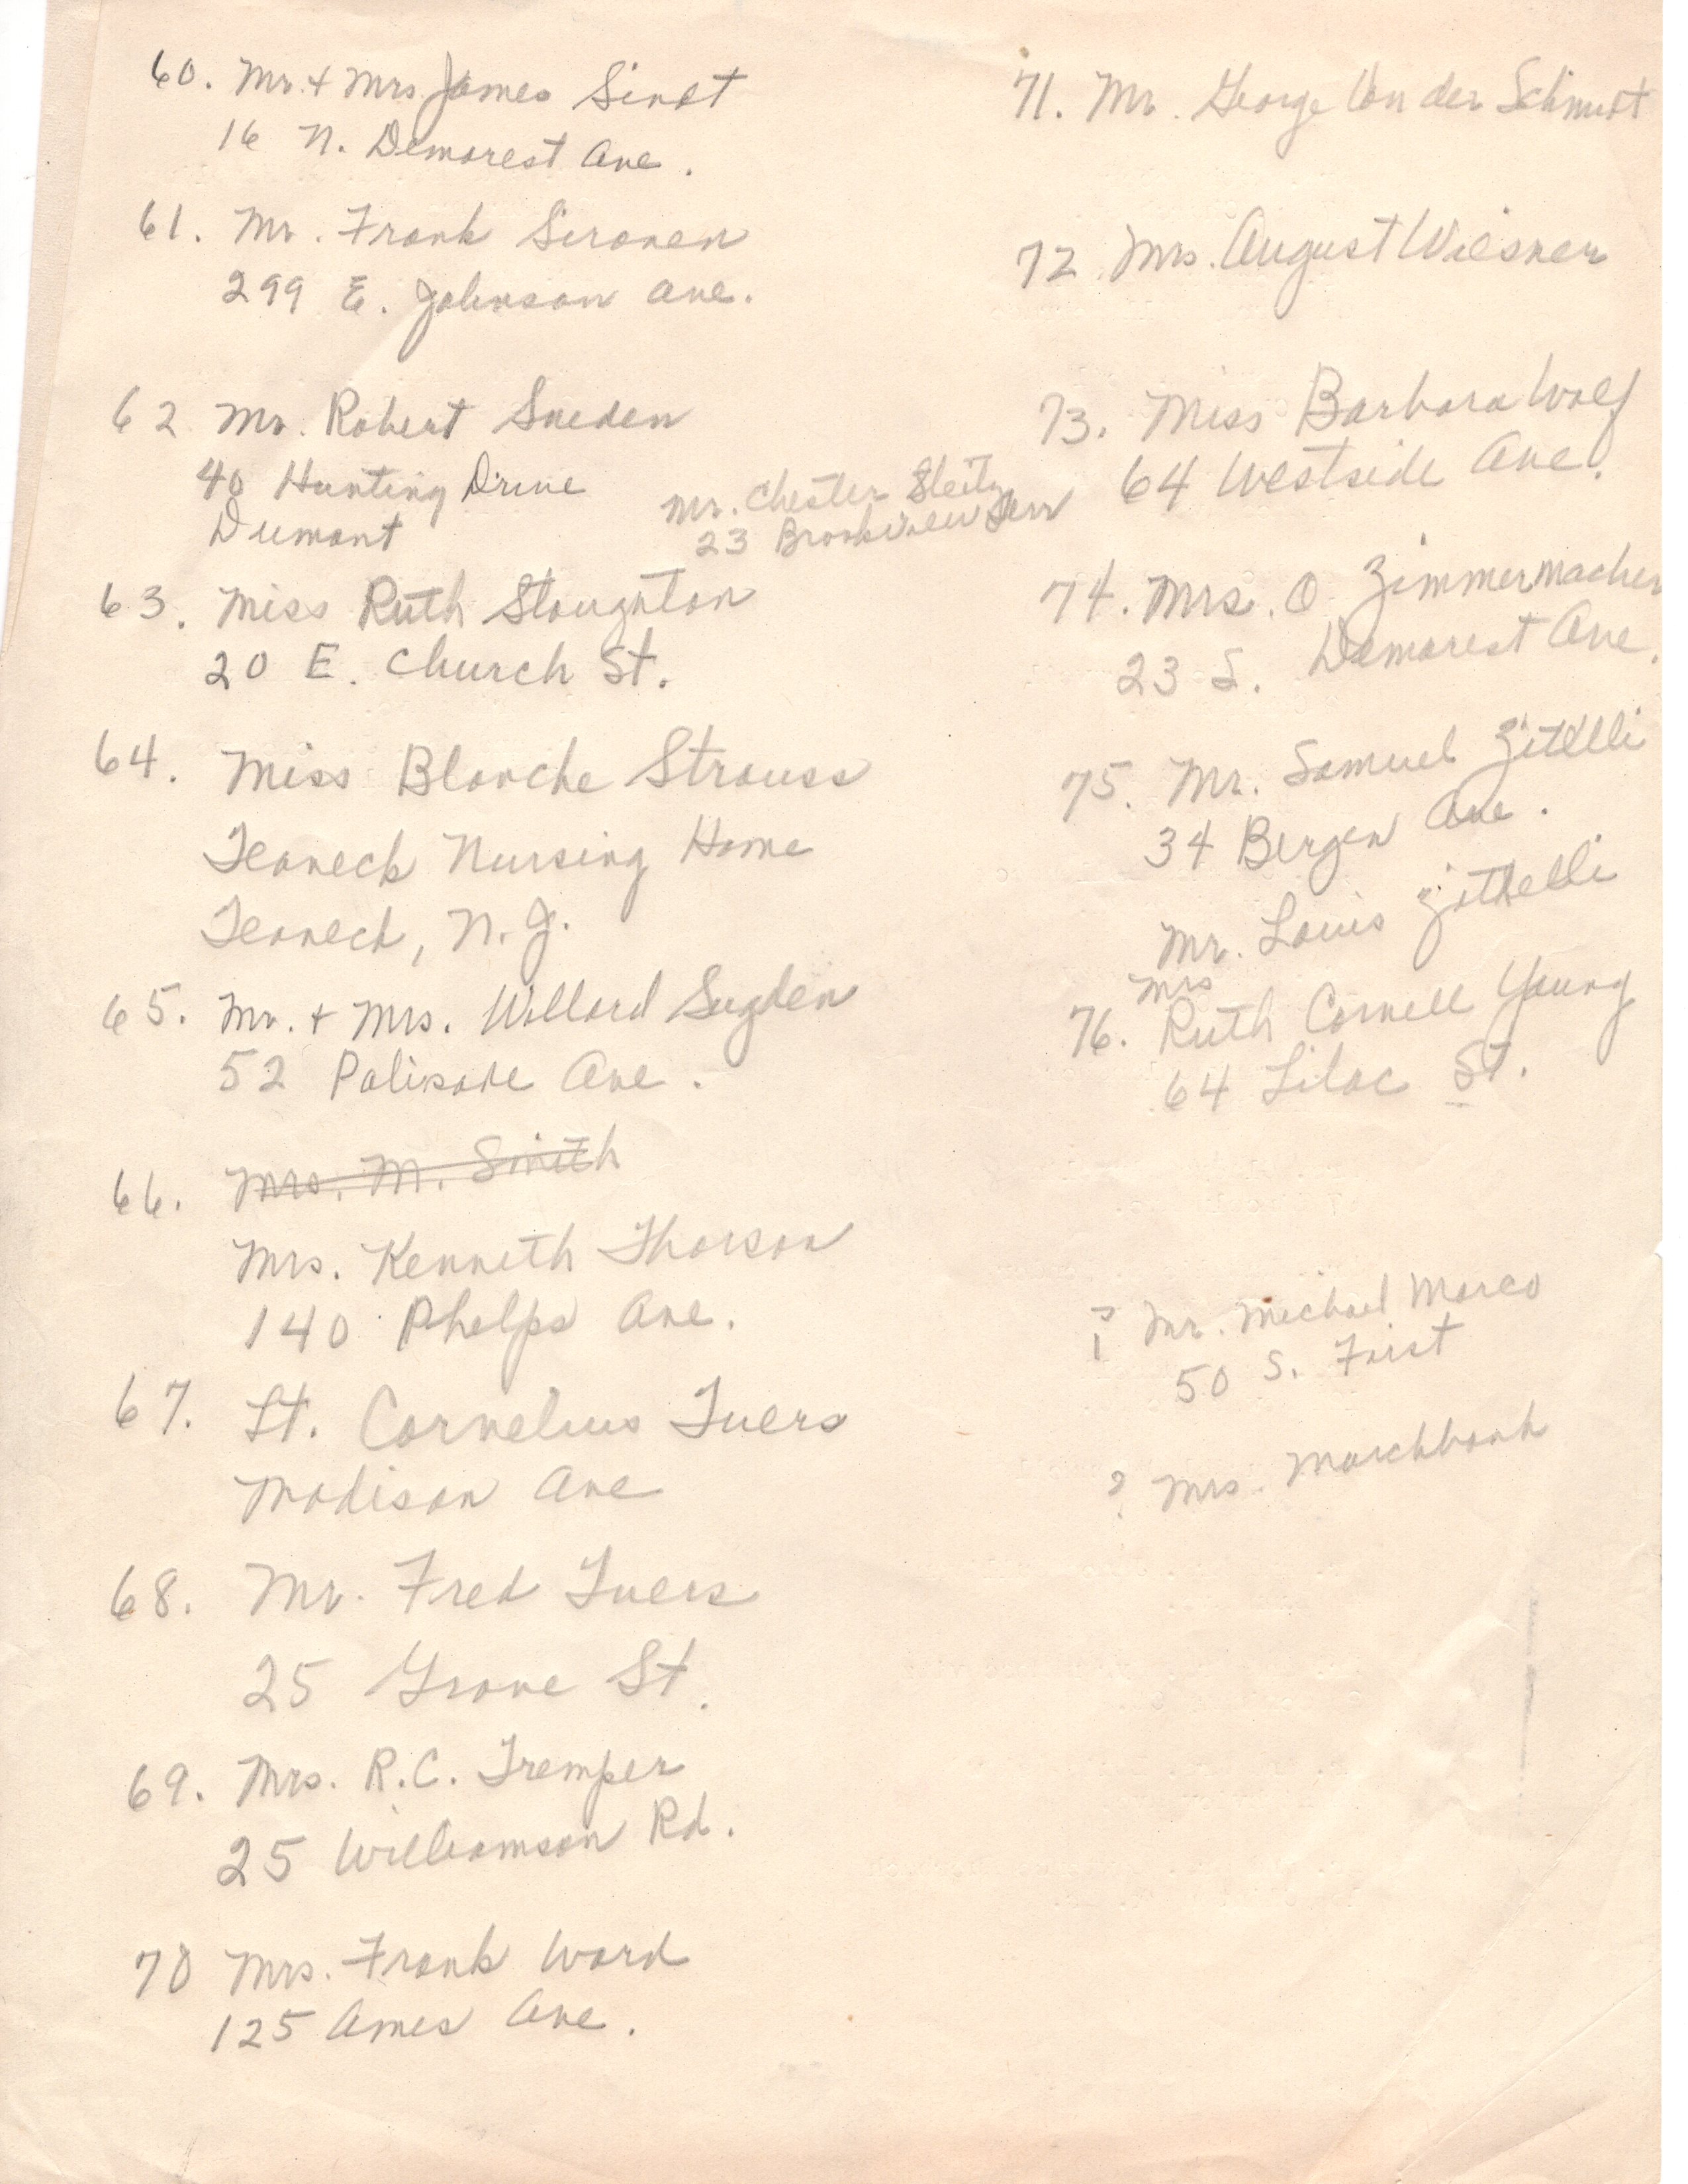 60. Mr. + Mrs James Sindt
16 N. Demorest Ave.
61. Mr. Frank Sironen
299 E. Johnson Ave.
62 Mr. Robert Sneden
40 Hunting Drive
Dumont
Mr. Chester Sleitz
23 Brookview Terr
63. Miss Ruth Stoughton
20 E. Church St.
64. Miss Blanche Strauss
Teaneck Nursing Home
Teaneck, N.J.
65. Mr. + Mrs. Willard Sugden
52 Palisade Ave.
66. Mrs. M. Smith
Mrs. Kenneth Thorson
140 Phelps Ave.
67. Lt. Cornelius Tuers
Madison Ave
68. Mr. Fred Tuers
25 Grove St.
69. Mrs. R.C. Tremper
25 Williamson Rd.
70 Mrs. Frank Ward
125 Ames Ave.
71. Mr. George Von der Schmidt
72 Mrs. August Wiesner
73. Miss Barbara Wolf
64 Westside Ave.
74. Mrs. O. Zimmermacher
23 S. Demarest Ave.
75. Mr. Samuel Zitelli
34 Bergen Ave.
Mr. Louis Zittelli
Mrs
76. Ruth Cornell Young
64 Lilac St.
? Mr. Michael Marco
50 S. First
? Mrs. Marchbank